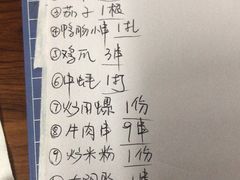 ③茄子 1根
④鸭肠小串 1扎
⑤鸡爪 3串
⑥中蚝 1打
⑦炒田螺 1份
⑧牛肉串 9串
⑨炒米粉 1份